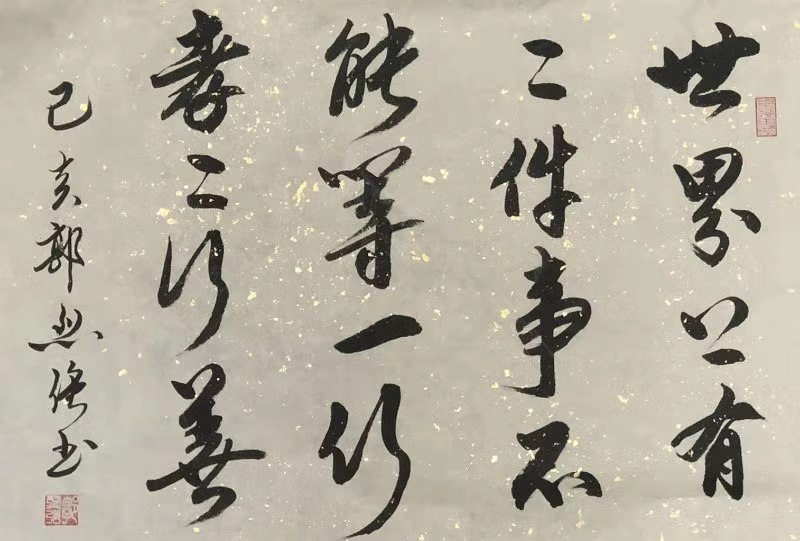 世界上有
二件事不
能等一行
孝二行善
己亥郭
书